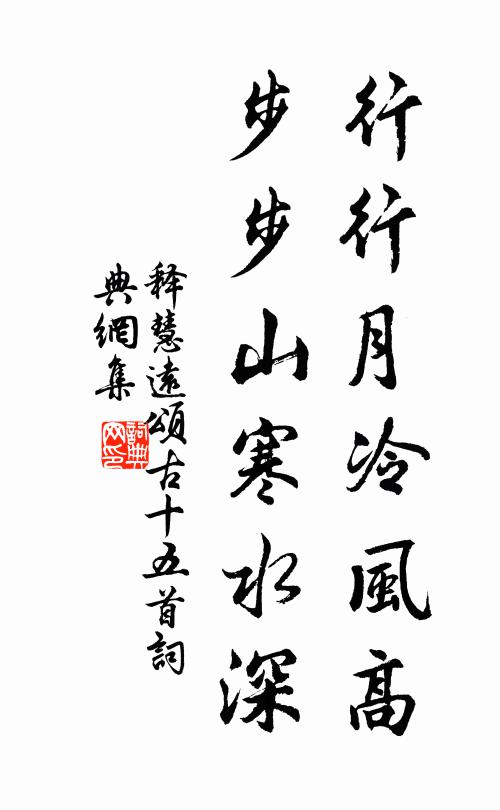 行行月冷風高
步步山寒水深
释慧遠頌古十五首詞
典網集
詞典
网印